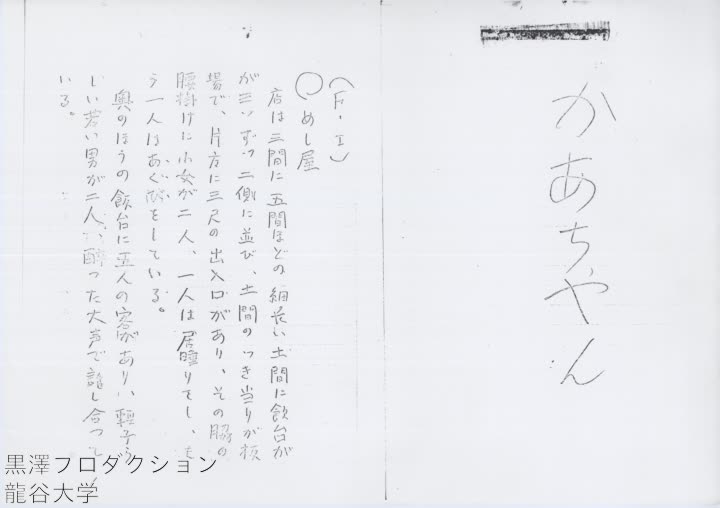 かあちゃん
(F・I)
○めし屋
店は三間に五間ほどの細長い土間に飯台が
が三ツずつ二側に並び、土間のつき当りが板
場で、片方に三尺の出入口があり、その脇の
腰掛けに小女が二人、一人は居睡りをし、も
う一人はあくびをしている。
奥のほうの飯台に五人の客があり、
しい若い男が二人、酔った大声で話し合って
いる。
黒澤プロダクション
龍谷大学